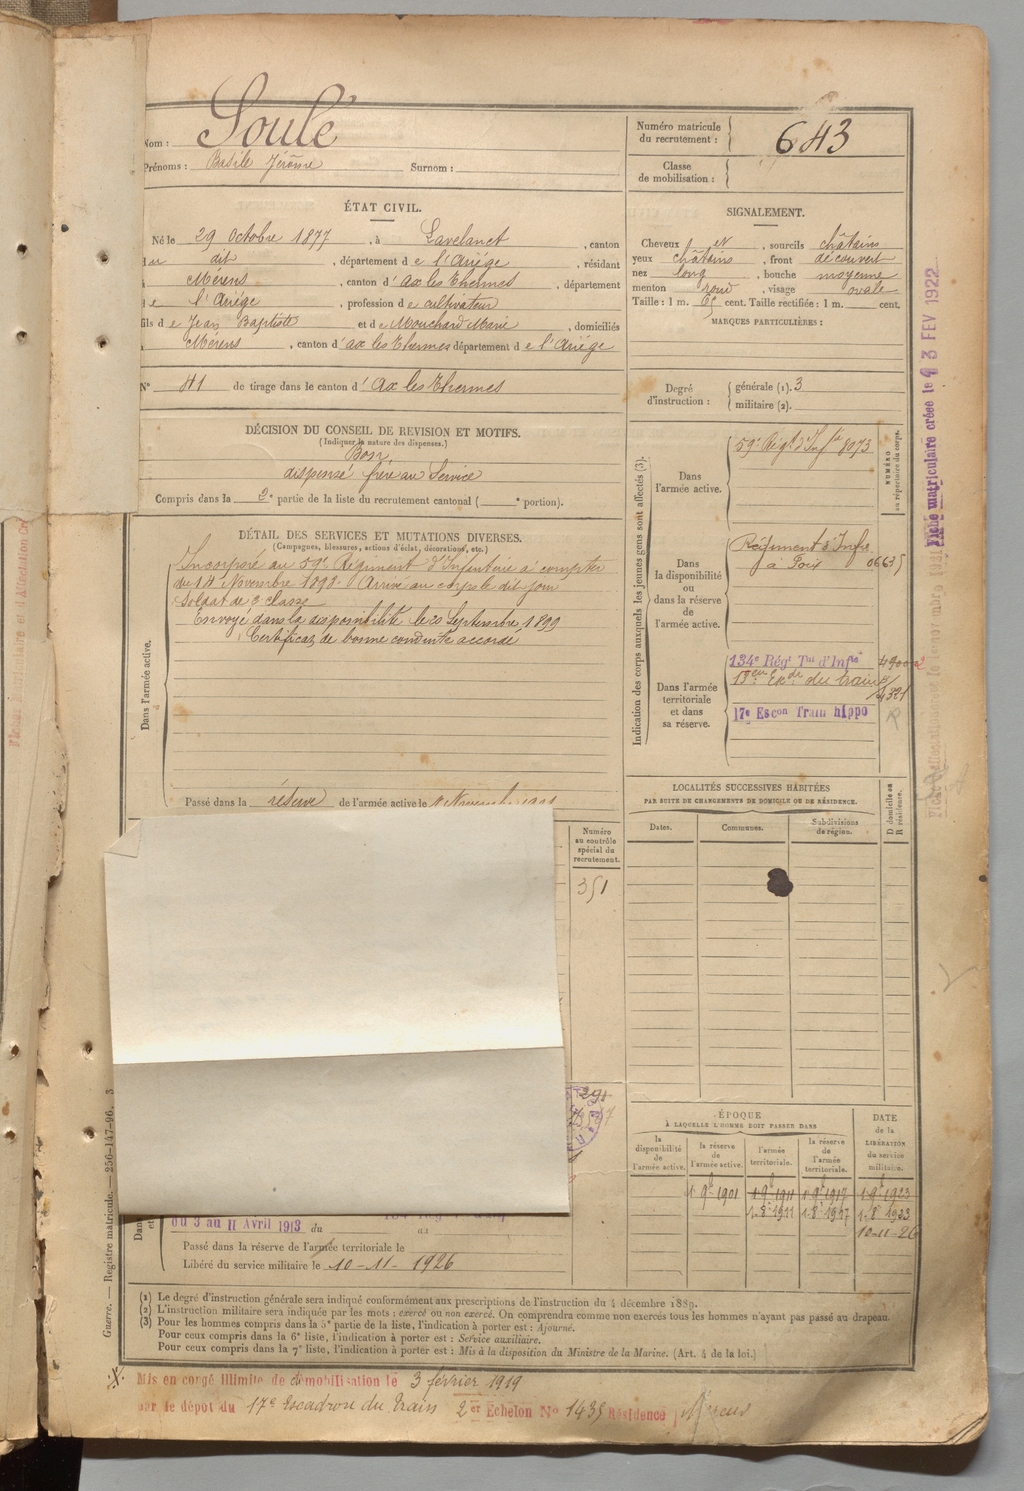 Nom : Soulé
Prénoms : Basile Jérôme Surnom :
Numéro matricule du recrutement : 643
Classe de mobilisation :
ÉTAT CIVIL.
Né le 29 Octobre 1877, à Lavelanet, canton
du dit, département de l'Ariége, résidant
Mérens, canton d'ax les Thermes, département
de l'Ariége, profession de cultivateur
fils de Jean Baptiste et de Mouchard Marie, domiciliés
Mérens, canton d'ax les Thermes département de l'Ariége
N° 41 de tirage dans le canton d'Ax les Thermes
SIGNALEMENT.
Cheveux et, sourcils châtains
yeux châtains, front découvert
nez long, bouche moyenne
menton rond, visage ovale
Taille : 1 m. 65 cent. Taille rectifiée : 1 m. cent.
MARQUES PARTICULIÈRES :
Degré d'instruction : générale (1). 3
militaire (2).
DÉCISION DU CONSEIL DE REVISION ET MOTIFS.
(Indiquer la nature des dispenses.)
Bon
dispensé frère au Service
Compris dans la 2e partie de la liste du recrutement cantonal ( e portion).
DÉTAIL DES SERVICES ET MUTATIONS DIVERSES.
(Campagnes, blessures, actions d'éclat, décorations, etc.)
Dans l'armée active.
Incorporé au 59e Régiment d'Infanterie à compter
du 14 Novembre 1898. Arrivé au corps le dit jour
Soldat de 2e classe
Envoyé dans la disponibilité le 20 Septembre 1899
Certificat de bonne conduite accordé
Passé dans la réserve de l'armée active le
Indication des corps auxquels les jeunes gens sont affectés (3).
Dans l'armée active.
59e Régt d'Infie 8073
NUMÉRO au répertoire du corps.
Dans la disponibilité ou dans la réserve de l'armée active.
Régiment d'Infie
à Foix 06635
Dans l'armée territoriale et dans sa réserve.
134e Régt Tal d'Infie
13em Exde du train
4321
17e Escon Train hippo
LOCALITÉS SUCCESSIVES HABITÉES
PAR SUITE DE CHANGEMENTS DE DOMICILE OU DE RÉSIDENCE.
Dates. Communes. Subdivisions de région. D domicile ou R résidence.
Numéro au contrôle spécial du recrutement.
351
ÉPOQUE
À LAQUELLE L'HOMME DOIT PASSER DANS
la disponibilité de l'armée active. la réserve de l'armée active. l'armée territoriale. la réserve de l'armée territoriale.
DATE de la LIBÉRATION du service militaire.
1 9e 1901 1 9e 1911 1 9e 1917 1 9e 1923
1. 8e 1911 1. 8e 1917 1. 8e 1923
10-11-26
du 3 au 11 Avril 1913 du au
Passé dans la réserve de l'armée territoriale le
Libéré du service militaire le 10-11-1926
(1) Le degré d'instruction générale sera indiqué conformément aux prescriptions de l'instruction du 4 décembre 1889.
(2) L'instruction militaire sera indiquée par les mots : exercé ou non exercé. On comprendra comme non exercés tous les hommes n'ayant pas passé au drapeau.
(3) Pour les hommes compris dans la 5e partie de la liste, l'indication à porter est : Ajourné.
Pour ceux compris dans la 6e liste, l'indication à porter est : Service auxiliaire.
Pour ceux compris dans la 7e liste, l'indication à porter est : Mis à la disposition du Ministre de la Marine. (Art. 4 de la loi.)
Mis en congé illimité de démobilisation le 3 février 1919
par le dépôt du 17e Escadron du Train 2er Echelon No 1435 Résidence Mérens
Guerre. — Registre matricule. — 256-147-96. 3
Fiche matriculaire créée le 13 FEV 1922